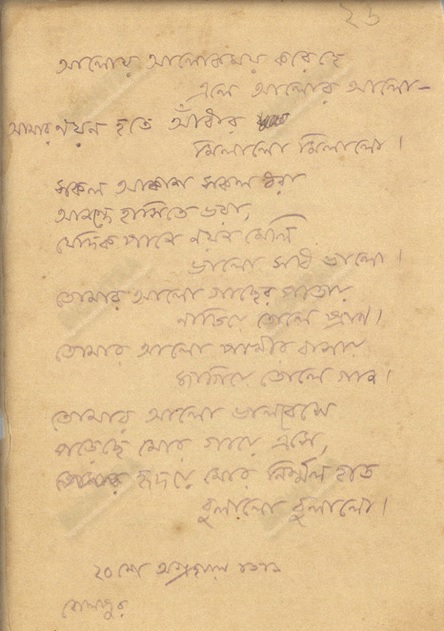 ২৬
আলোয় আলোকময় করেহে
এলে আলোর আলো—
আমার নয়ন হতে আঁধার
মিলালো মিলালো।
সকল আকাশ সকল ধরা
আনন্দে হাসিতে ভরা,
যেদিক পানে নয়ন মেলি
ভালো সবি ভালো।
তোমার আলো গাছের পাতায়
নাচিয়ে তোলে প্রাণ।
তোমার আলো পাখীর বাসায়
জাগিয়ে তোলে গান।
তোমার আলো ভালবেসে
পড়েছে মোর গায়ে এসে,
হৃদয়ে মোর নির্ম্মল হাত
বুলালো বুলালো।
২০শে অগ্রহায়ণ ১৩১৬
বোলপুর